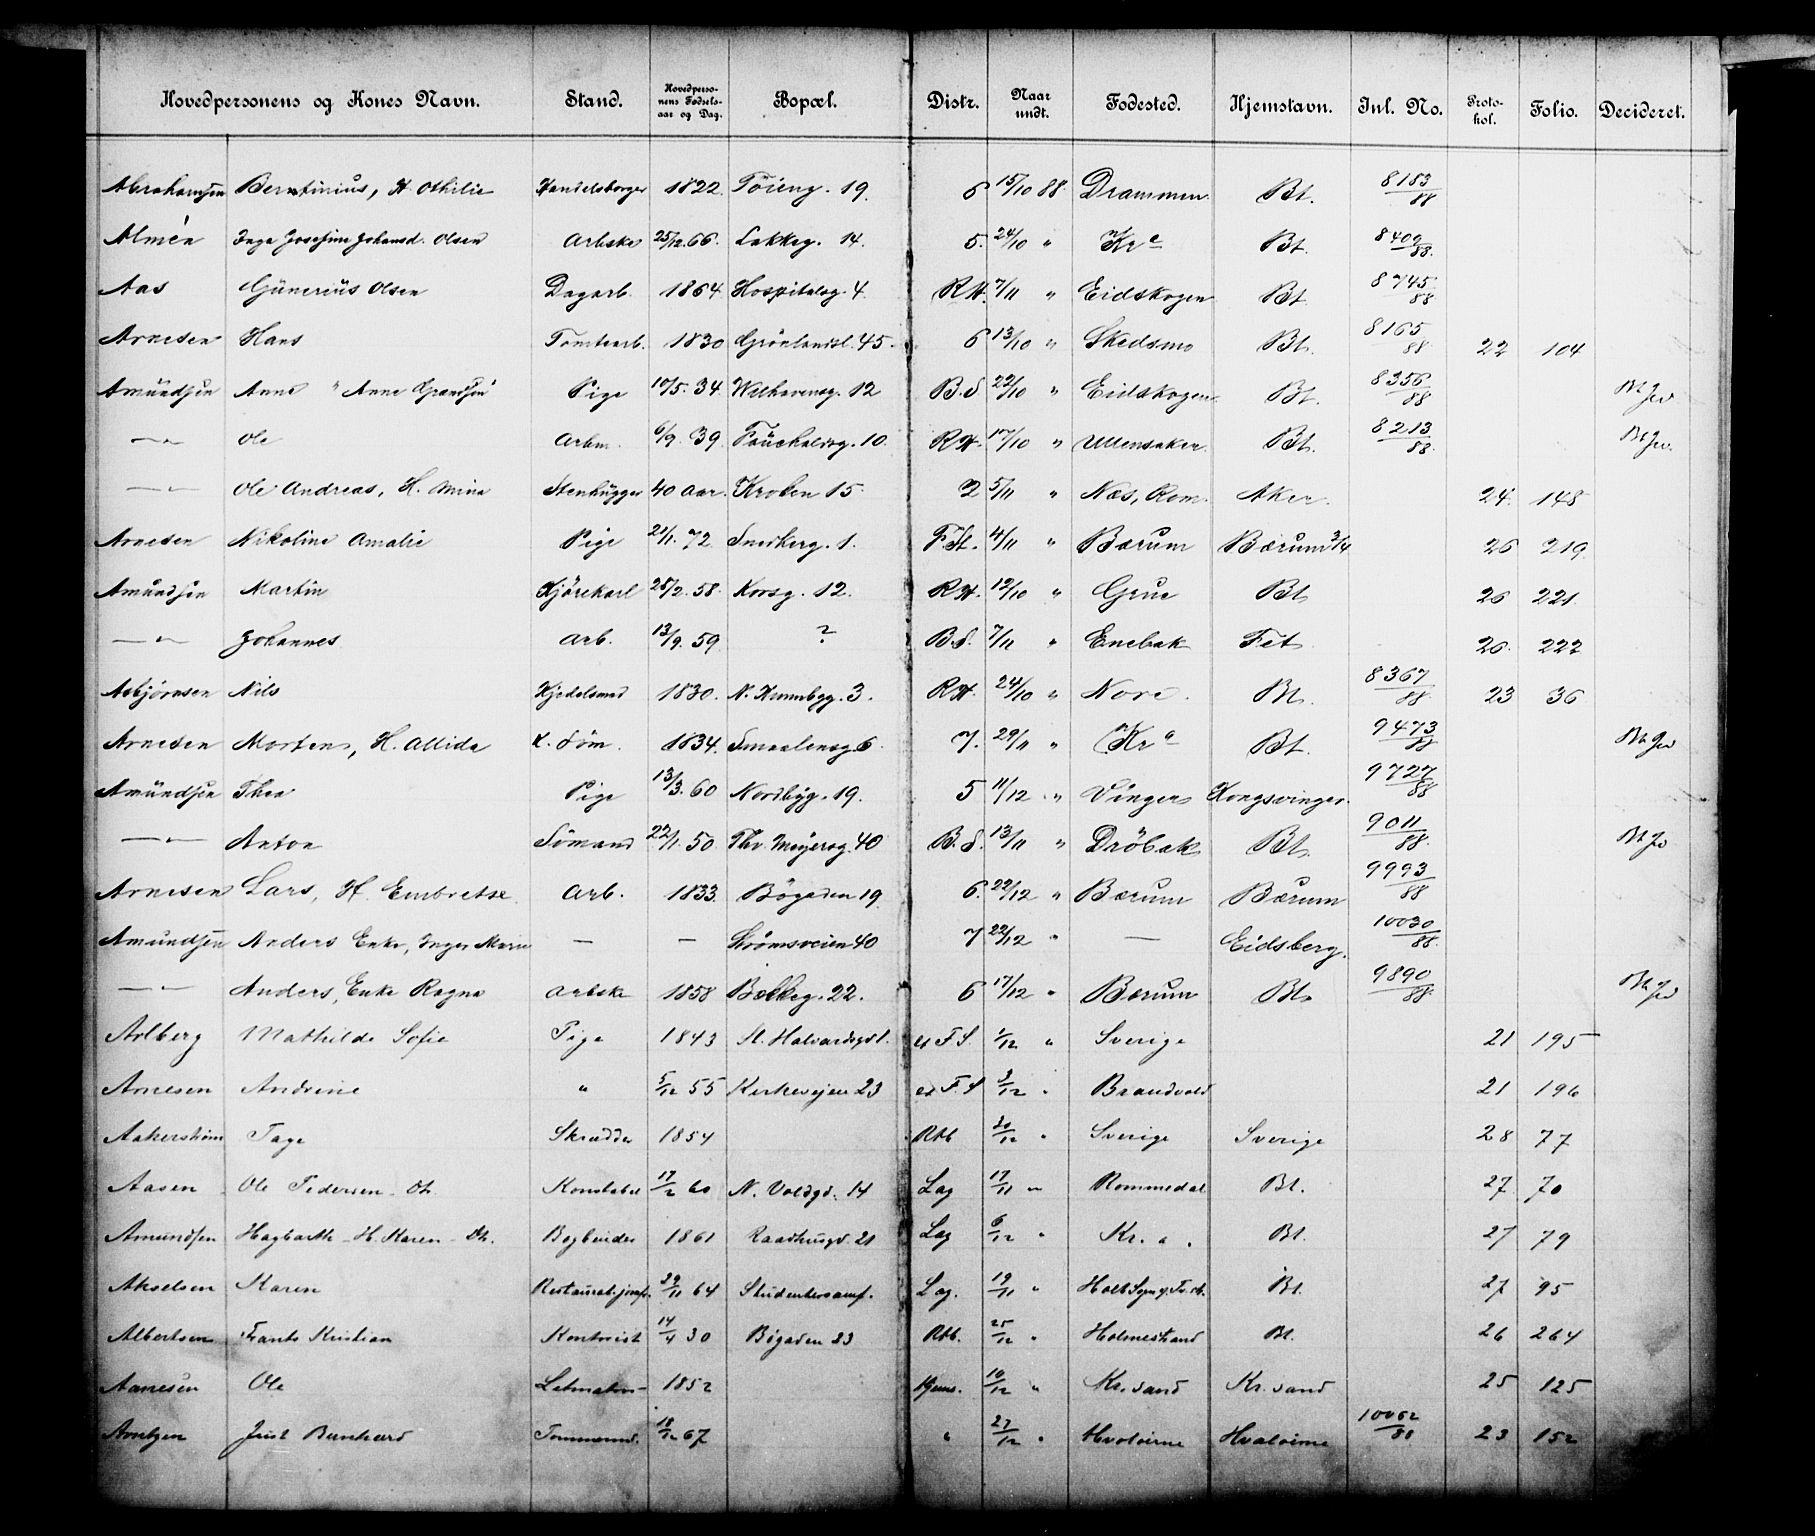 Hovedpersonens og Kones Navn. Stand. Hovedpersonens Fødselsaar og Dag. Bopæl. Distr. Naar undt. Fødested. Hjemstavn. Inl. No. Protokol. Folio. Decideret.
Abrahamsen Berntinius, H. Othilie Handelsborger 1822 Töieng. 19. 6 15/10 88 Drammen Bt. 8183/88
Almén Inga Josefine Johansd. Olsen Arbske 25/12 66. Lakkeg. 14. 5. 24/10 " Kra Bt. 8409/88
Aas Günerius Olsen Dagarb. 1864 Hospitalsg. 4. RH. 7/11 " Eidskogen Bt. 8745/88
Arnesen Hans Tomtearb. 1830 Grönlandsl. 45. 6 13/10 " Skedsmo Bt. 8165/88 22 104
Amündsen Anne " Anne Pige 10/5. 34. Welhavensg. 12 B.S 22/10 " Eidskogen Bt. 8356/88
—"— Ole Arbm. 6/9. 39. Fauchaldsg. 10. RH. 17/10 " Ullensaker Bt. 8213/88
—"— Ole Andreas, H. Mina Stenhügger 40 Aar. Kroken 15. 2 5/11 " Næs, Rom. Aker. 24. 148
Arnesen Nikoline Amalie Pige 21/1. 72 Smedberg. 1. F.St. 4/11 " Bærum Bærum 3/4 26 219
Amündsen Martin Kjörekarl 28/2. 58. Korsg. 12. RH. 12/10 " Grue Bt. 26 221
—"— Johannes Arb. 13/9. 59 ? B.S. 7/11 " Enebak Fet 26. 222
Asbjörnsen Nils Kjedelsmed 1830. 3. RH. 24/10 " Nore. Bt. 8367/88 23 36
Arnesen Morten, H. Allida 1834. Smaalensg 6. 7. 29/11 " Kra Bt. 9473/88
Amündsen Thea Pige 13/3. 60 Nordbyg. 19. 5 11/12 " Vinger Kongsvinger. 9727/88
—"— Anton Sömand 22/1. 50. Thv. Meyersg. 40 B.S. 13/11 " Dröbak Bt. 9011/88
Arnesen Lars, H. Embretse. Arb. 1833. Bögaden 19. 6. 22/12 " Bærum Bærum 9993/88
Amundsen Anders Enke, Inger Marie — — Strömsveien 40 7 22/12 " — Eidsberg. 10030/88
—"— Anders, Enke Ragna Arbske 1858 Bakkeg. 22. 6 17/12 " Bærum Bt. 9890/88
Arlberg Mathilde Sofie Pige 1843 St. Halvardsgd 1. F.S. 1/12 " Sverige 21 195
Arnesen Andrine " 5/12 55 Kirkevejen 23 F.S 3/12 " Brandvold 21 196
Aakerström Tage Skrædder 1854 Rtb 20/12 " Sverige Sverige 28 77
Aasen Ole Pedersen Konstabel 17/2 60 N. Voldgd. 14 Lag 17/11 " Rommedal Bt. 27 70
Amundsen Hagbarth - H. Karen Bogbinder 1861 Raadhusgd. 21 Lag 6/12 " Kr. a. Bt. 27 79
Akselsen Karen 29/11 64 Studentersamf. Lag. 19/11 " Bt. 27 95
Albertsen Frants Kristian Kontorist 14/4 30 Bögaden 23 Rtb. 25/12 " Holmestrand Bt. 26 264
Aanesen Ole 1852 10/12 " Kr. sand Kr. sand 25 125
Arntzen Just Bernhard Tømmermd. 18/12 67 " 27/12 " Hvaløerne Hvaløerne 10062/88 23 152